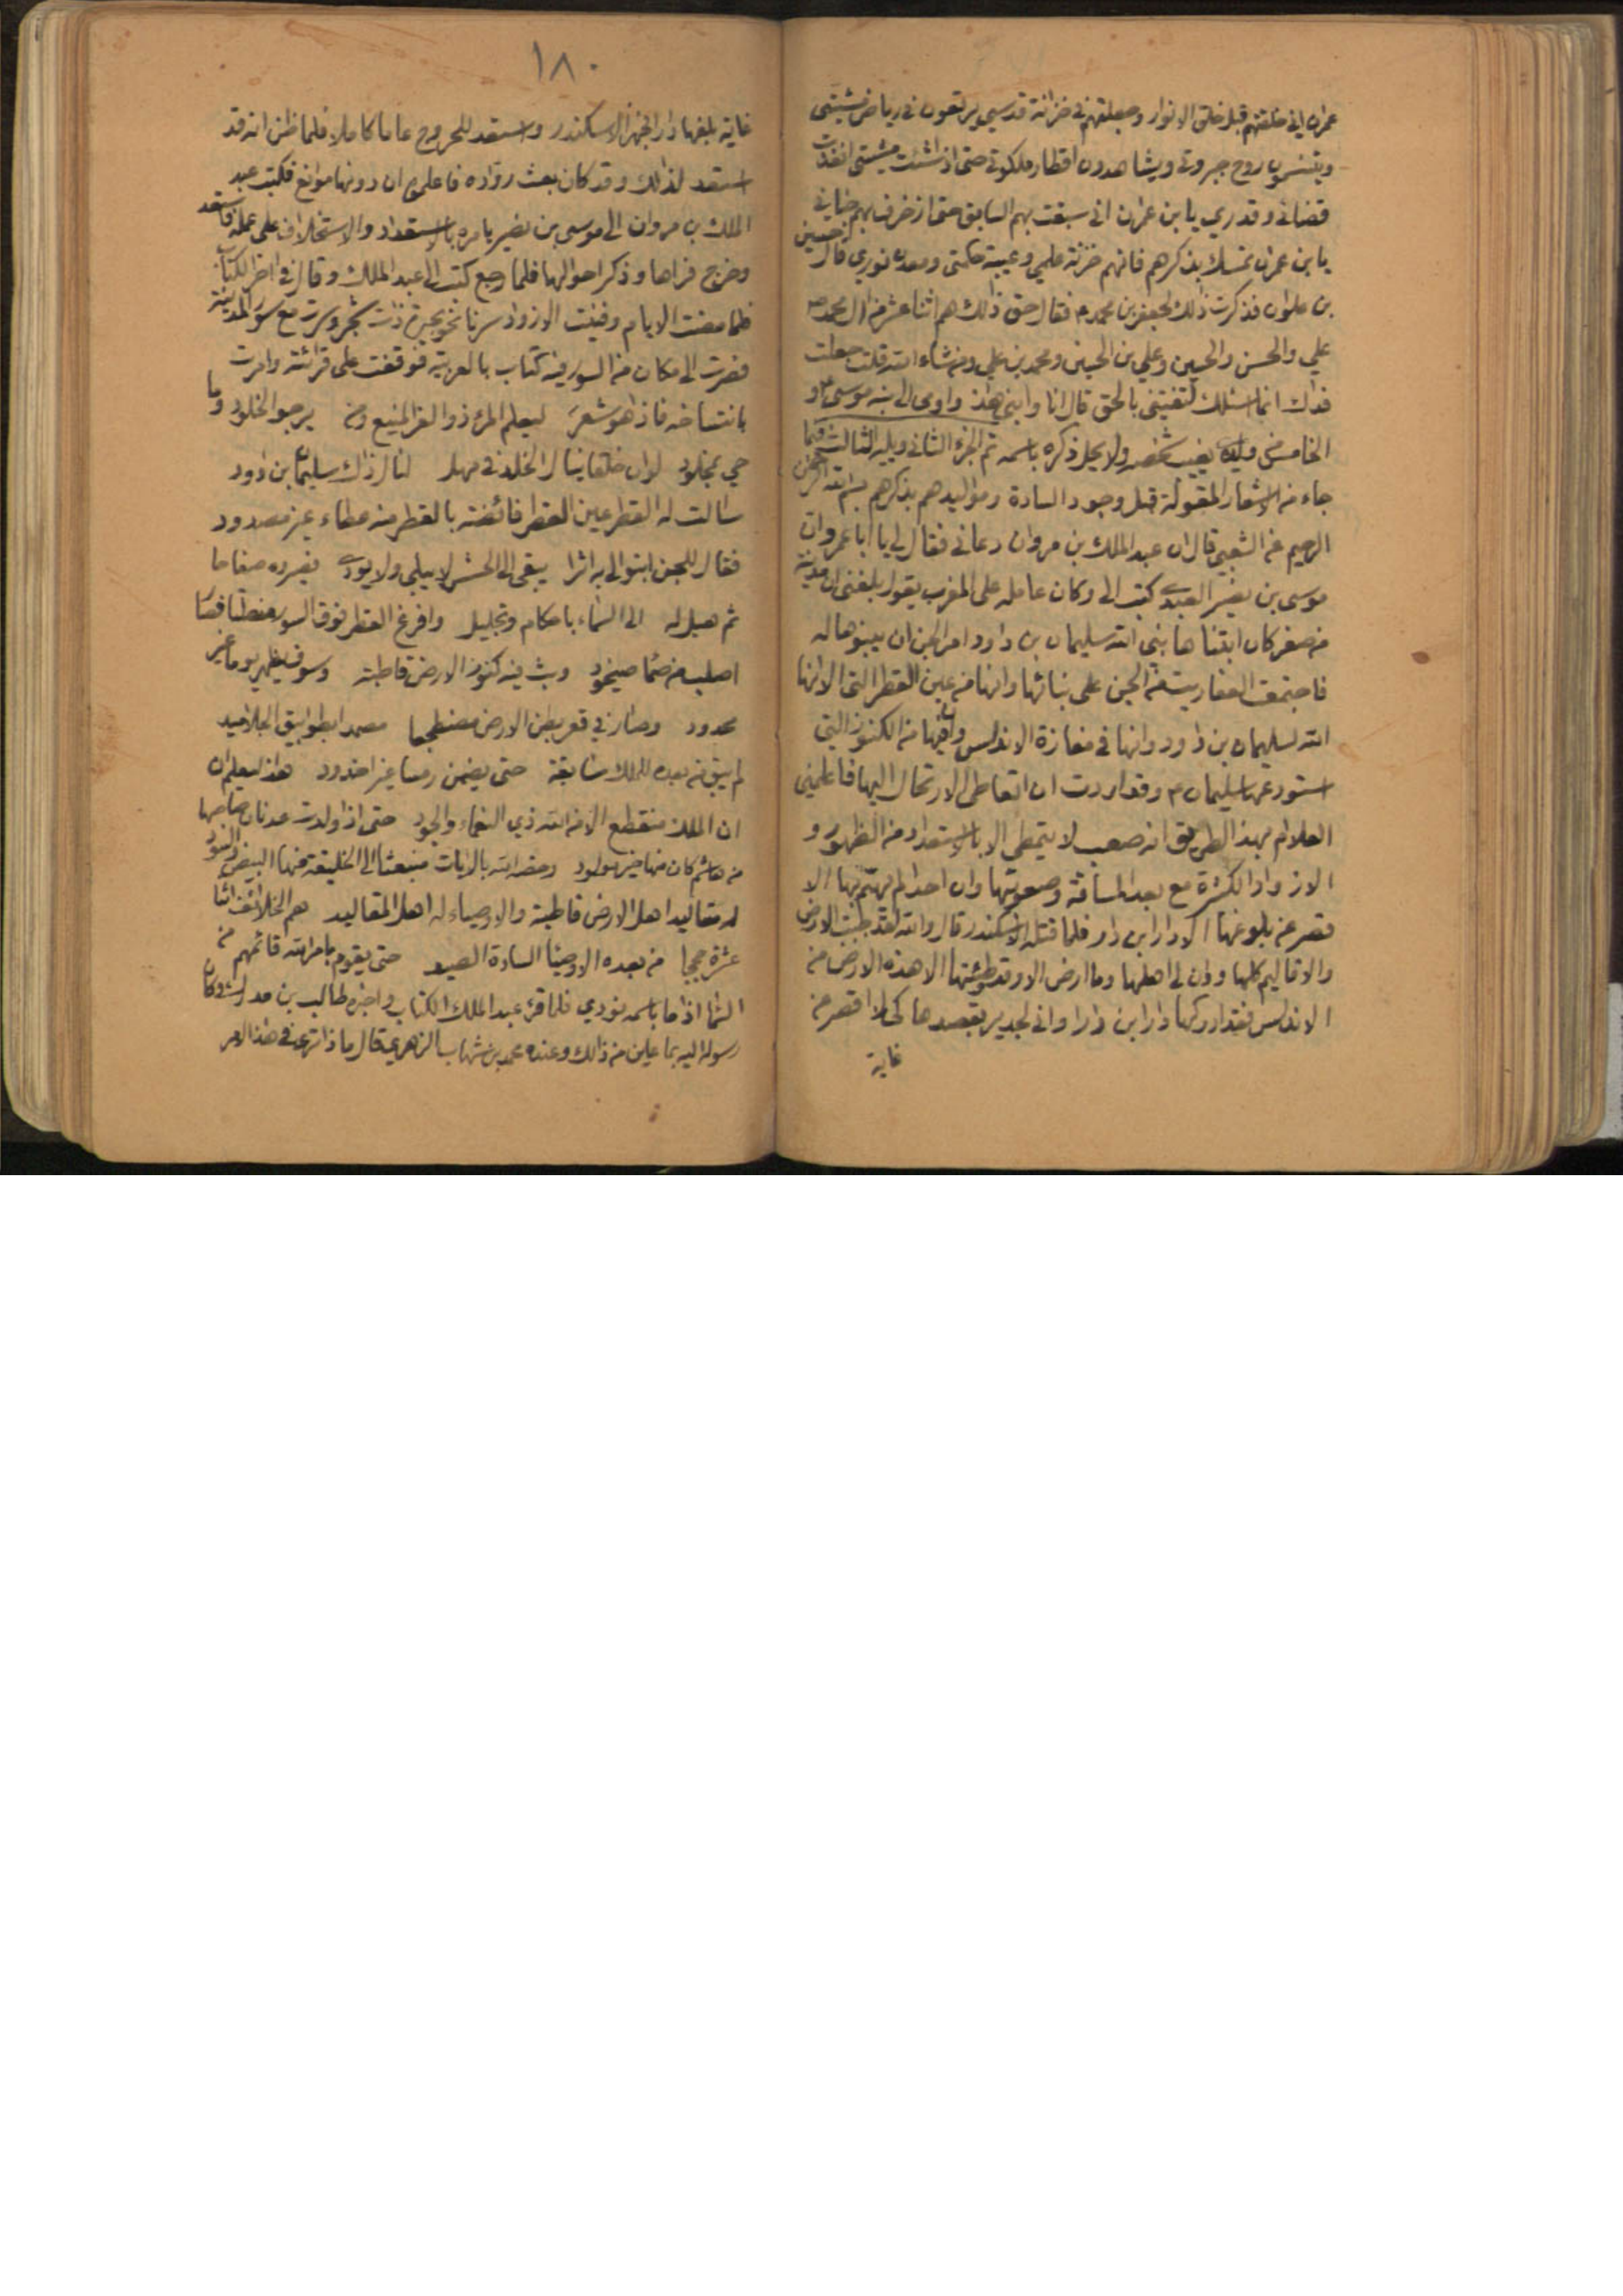 عمران اني خلقتهم قبل خلق الانوار وجعلتهم في خزانة قدسي يرتعون في رياض مشيتي
ويتنسمون روح جبروتي ويشاهدون اقطار ملكوتي حتى اذا شئت مشيتي انفذت
قضائي وقدري يا بن عمران اني سبقت بهم السابق حتى ازخرف بهم جناني
يا بن عمران تمسك بذكرهم فانهم خزنة علمي وعيبة حكمتي ومعدن نوري قال حسين
بن علوان فذكرت ذلك لجعفر بن محمد ع فقال حق ذلك هم اثنا عشر من ال محمد ص
علي والحسن والحسين وعلي بن الحسين ومحمد بن علي ومن شاء الله قلت جعلت
فداك انما اسئلك لتفتيني بالحق قال انا وابني هذا واومى الى ابنه موسى ع و
الخامس من ولده يغيب شخصه ولا يحل ذكره باسمه تم الجزء الثاني ويليه الثالث فيما
جاء من الاشعار المقولة قبل وجود السادة ومواليدهم بذكرهم بسم الله الرحمن
الرحيم عن الشعبي قال ان عبد الملك بن مروان دعاني فقال لي يا ابا عمرو ان
موسى بن نصير العبدي كتب الي وكان عامله على المغرب يقول بلغني ان مدينة
من صفر كان ابتناها نبي الله سليمان بن داود امر الجن ان يبنوها له
فاجتمعت العفاريت من الجن على بنائها وانها من عين القطر التي الانها
الله لسليمان بن داود وانها في مفازة الاندلس وان فيها من الكنوز التي
استودعها سليمان ع وقد اردت ان اتعاطى الارتحال اليها فاعلمني
العلام بهذا الطريق انه صعب لا يتمطى الا بالاستعداد من الظهور و
الازواد الكثيرة مع بعد المسافة وصعوبتها وان احدا لم يهتم بها الا
قصر عن بلوغها الا دارا بن دارا فلما قتله الاسكندر قال والله لقد جبت الارض
والاقاليم كلها ودان لي اهلها وما ارض الا وقد وطئتها الا هذه الارض من
الاندلس فقد ادركها دارا بن دارا واني لجدير بقصدها كي لا اقصر من
غاية
١٨٠
غاية بلغها دارا فجهز الاسكندر واستعد للخروج عاما كاملا فلما ظن انه قد
استعد لذلك وقد كان بعث رواده فاعلموا ان دونها موانع فكتب عبد
الملك بن مروان الى موسى بن نصير يامره بالاستعداد والاستخلاف على عمله فاستعد
وخرج فراها وذكر احوالها فلما رجع كتب الى عبد الملك وقال في اخر الكتاب
فلما مضت الايام وفنيت الازواد سرنا نحو بحيرة ذات شجر وسرت مع سور المدينة
فصرت الى مكان من السور فيه كتاب بالعربية فوقفت على قرائته وامرت
بانتساخه فاذا هو شعر ليعلم المرء ذو العز المنيع ومن يرجو الخلود وما
حي بمخلود لو ان خلقا ينال الخلد في مهل لنال ذاك سليمان بن داود
سالت له القطر عين القطر فائضة بالقطر منه عطاء غير مصدود
فقال للجن ابنوا لي به اثرا يبقى الى الحشر لا يبلى ولا يودي فصيروه صفاحا
ثم هيل له الى السماء باحكام وتجليل وافرغ القطر فوق السور منصلتا فصار
اصلب من صما صيخود وبث فيه كنوز الارض قاطبة وسوف يظهر يوما غير
محدود وصار في قعر بطن الارض مضطجعا مصمدا بطوابيق الجلاميد
لم يبق من بعده للملك سابقة حتى يضمن رمسا غير اخدود هذا ليعلم ان
ان الملك منقطع الا من الله ذي النعماء والجود حتى اذا ولدت عدنان صاحبها
من هاشم كان منها خير مولود وخصه الله بالايات منبعثا الى الخليقة منها البيض والسود
له مقاليد اهل الارض قاطبة والاوصياء له اهل المقاليد هم الخلائف اثنا
عشرة حججا من بعده الاوصيا السادة الصيد حتى يقوم بامر الله قائمهم من
السما اذا ما باسمه نودي فلما قرء عبد الملك الكتاب واخبره طالب بن مدرك وكان
رسوله اليه بما عاين من ذلك وعنده محمد بن شهاب الزهري قال ماذا ترى في هذا الامر